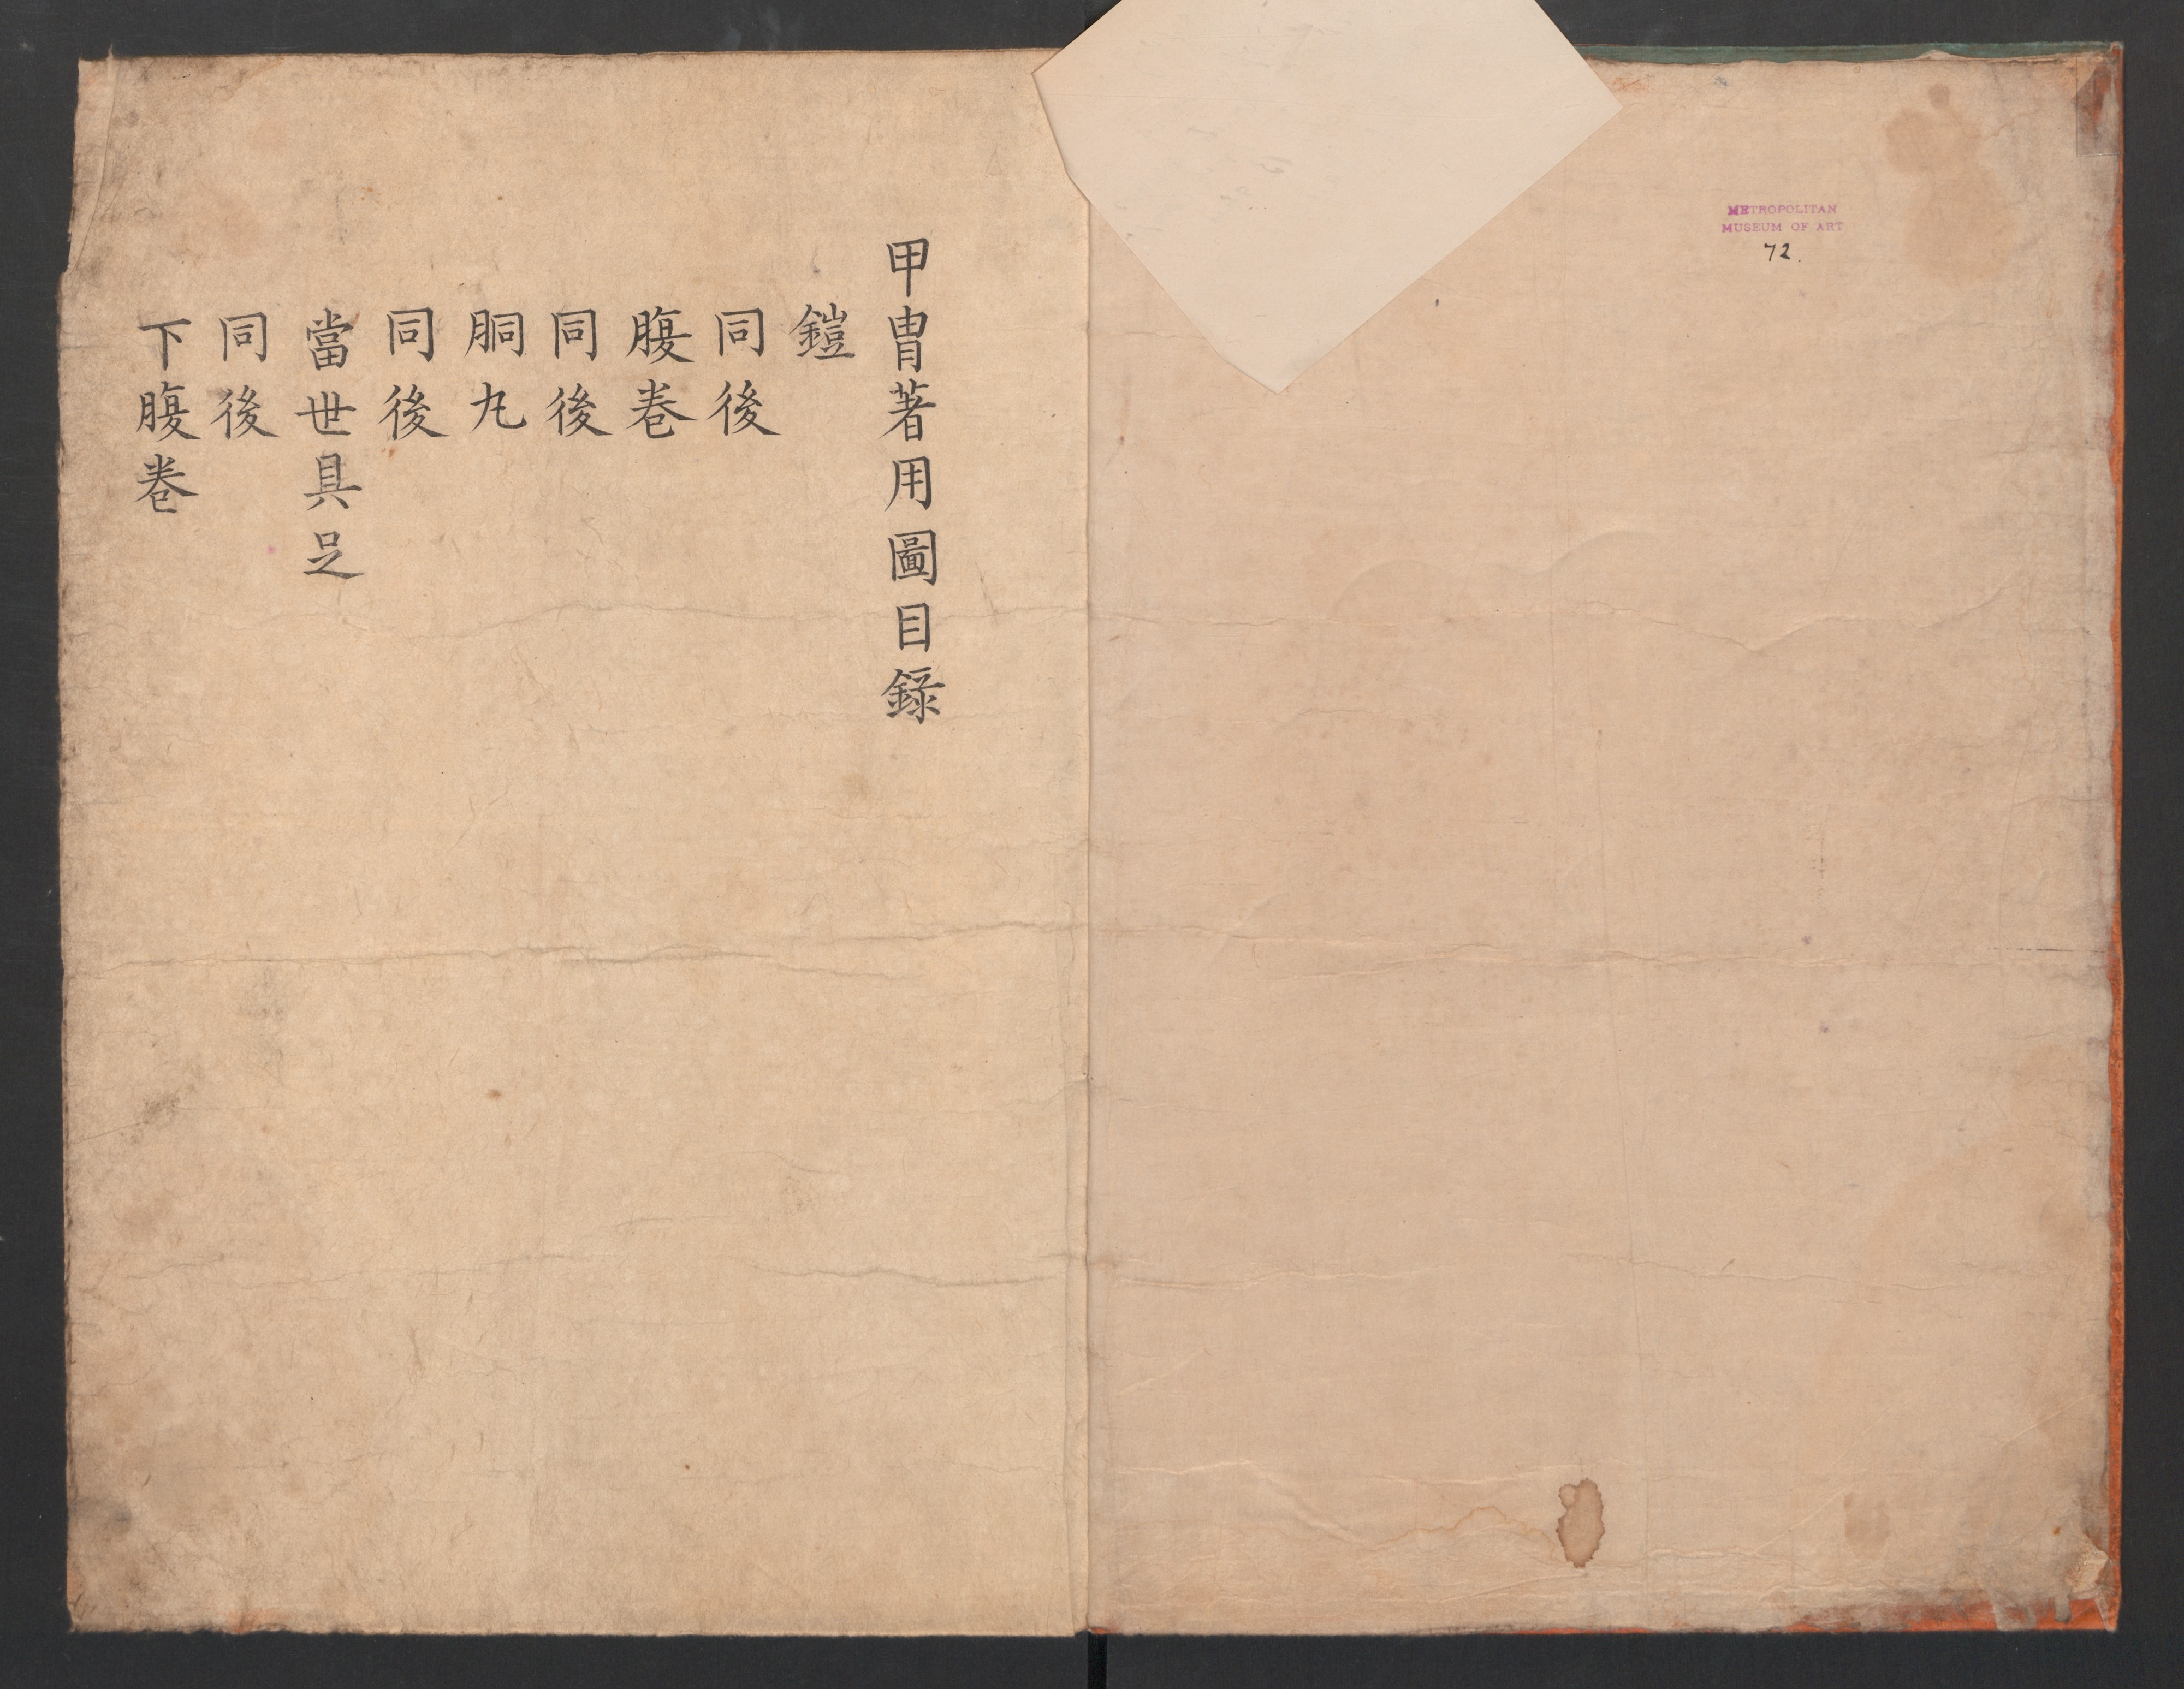 METROPOLITAN
MUSEUM OF ART
72.
甲冑著用圖目錄
鎧
同後
腹卷
同後
胴丸
同後
當世具足
同後
下腹卷